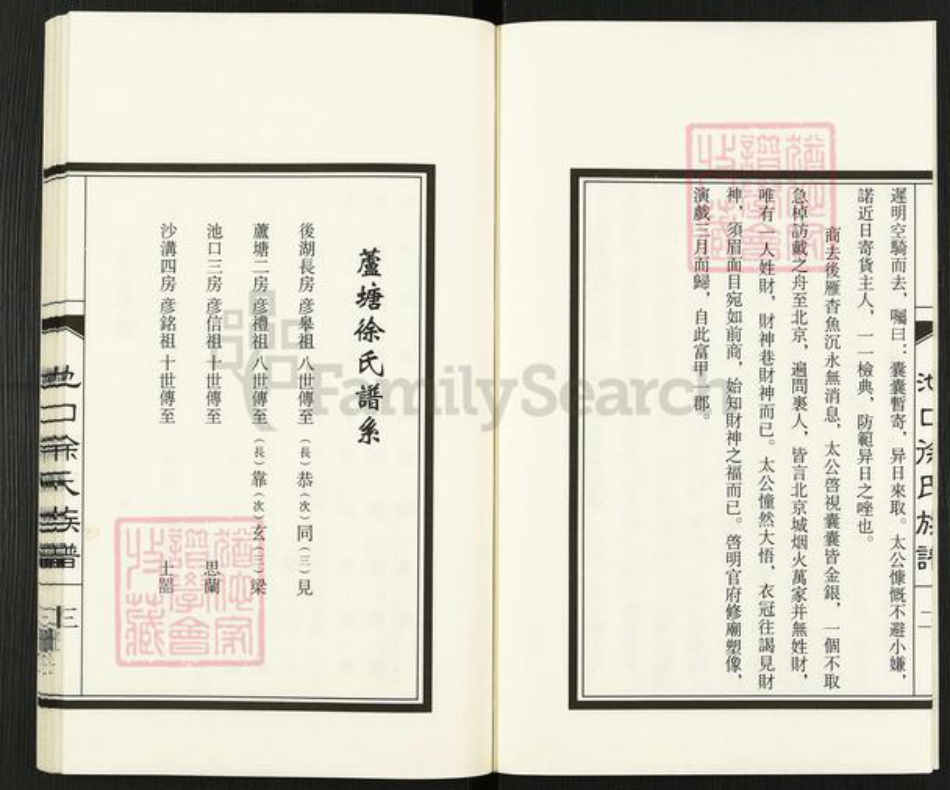 遲明空騎而去，囑曰：囊橐暫寄，异日來取。太公慷慨不避小嫌，
諾近日寄貨主人，一一檢典，防範异日之唑也。
商去後雁杳魚沉永無消息，太公啓視囊橐皆金銀，一個不取
急棹訪戴之舟至北京，遍問裏人，皆言北京城烟火萬家并無姓財，
唯有一人姓財，財神巷財神而已。太公憧然大悟，衣冠往謁見財
神，須眉面目宛如前商，始知財神之福而已。啓明官府修廟塑像，
演戲三月而歸，自此富甲一郡。
池口徐氏族譜
蘆塘徐氏譜系
後湖長房 彦皋祖 八世傳至 （長）恭（次）同（三）見
蘆塘二房 彦禮祖 八世傳至 （長）靠（次）玄（三）梁
池口三房 彦信祖 十世傳至 思蘭
沙溝四房 彦銘祖 十世傳至 士
池口徐氏族譜
猶他家譜學會收藏
猶他家譜學會收藏
FamilySearch